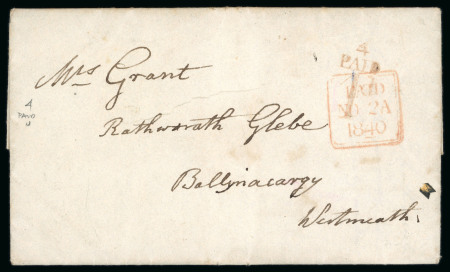 4
PAID
PAID
NY 2A
1840
Mrs Grant
4
PAID
Rathwrath Glebe
Ballynacargy
Westmeath.